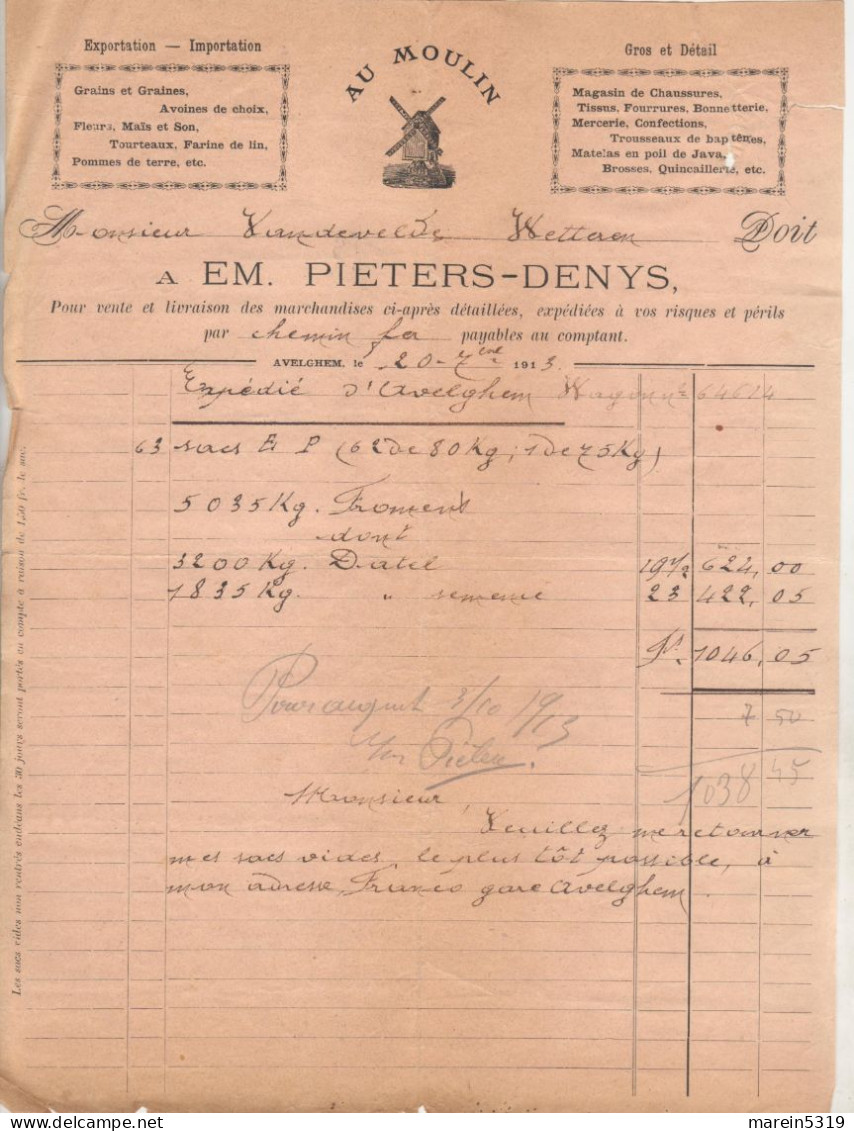 Exportation — Importation
Grains et Graines,
Avoines de choix,
Fleurs, Maïs et Son,
Tourteaux, Farine de lin,
Pommes de terre, etc.
AU MOULIN
Gros et Détail
Magasin de Chaussures,
Tissus, Fourrures, Bonnetterie,
Mercerie, Confections,
Trousseaux de baptêmes,
Matelas en poil de Java,
Brosses, Quincaillerie, etc.
Monsieur Vandevelde Wetteren Doit
A EM. PIETERS-DENYS,
Pour vente et livraison des marchandises ci-après détaillées, expédiées à vos risques et périls
par chemin fer payables au comptant.
AVELGHEM, le 20-7bre 1913.
Expédié d'Avelghem Wagon n° 64614
63 sacs E P (62 de 80 Kg; 1 de 75 Kg)
5035 Kg. Froments
dont
3200 Kg. Datel 19 1/2 624,00
1835 Kg. " semence 23 422,05
Fr. 1046,05
7 50
Pour acquit 3/10 1913
1038 45
Monsieur,
Veuillez me retourner
mes sacs vides, le plus tôt possible, à
mon adresse, Franco gare Avelghem.
Les sacs vides non rentrés endéans les 30 jours seront portés en compte à raison de 1,50 fr. le sac.
marein5319